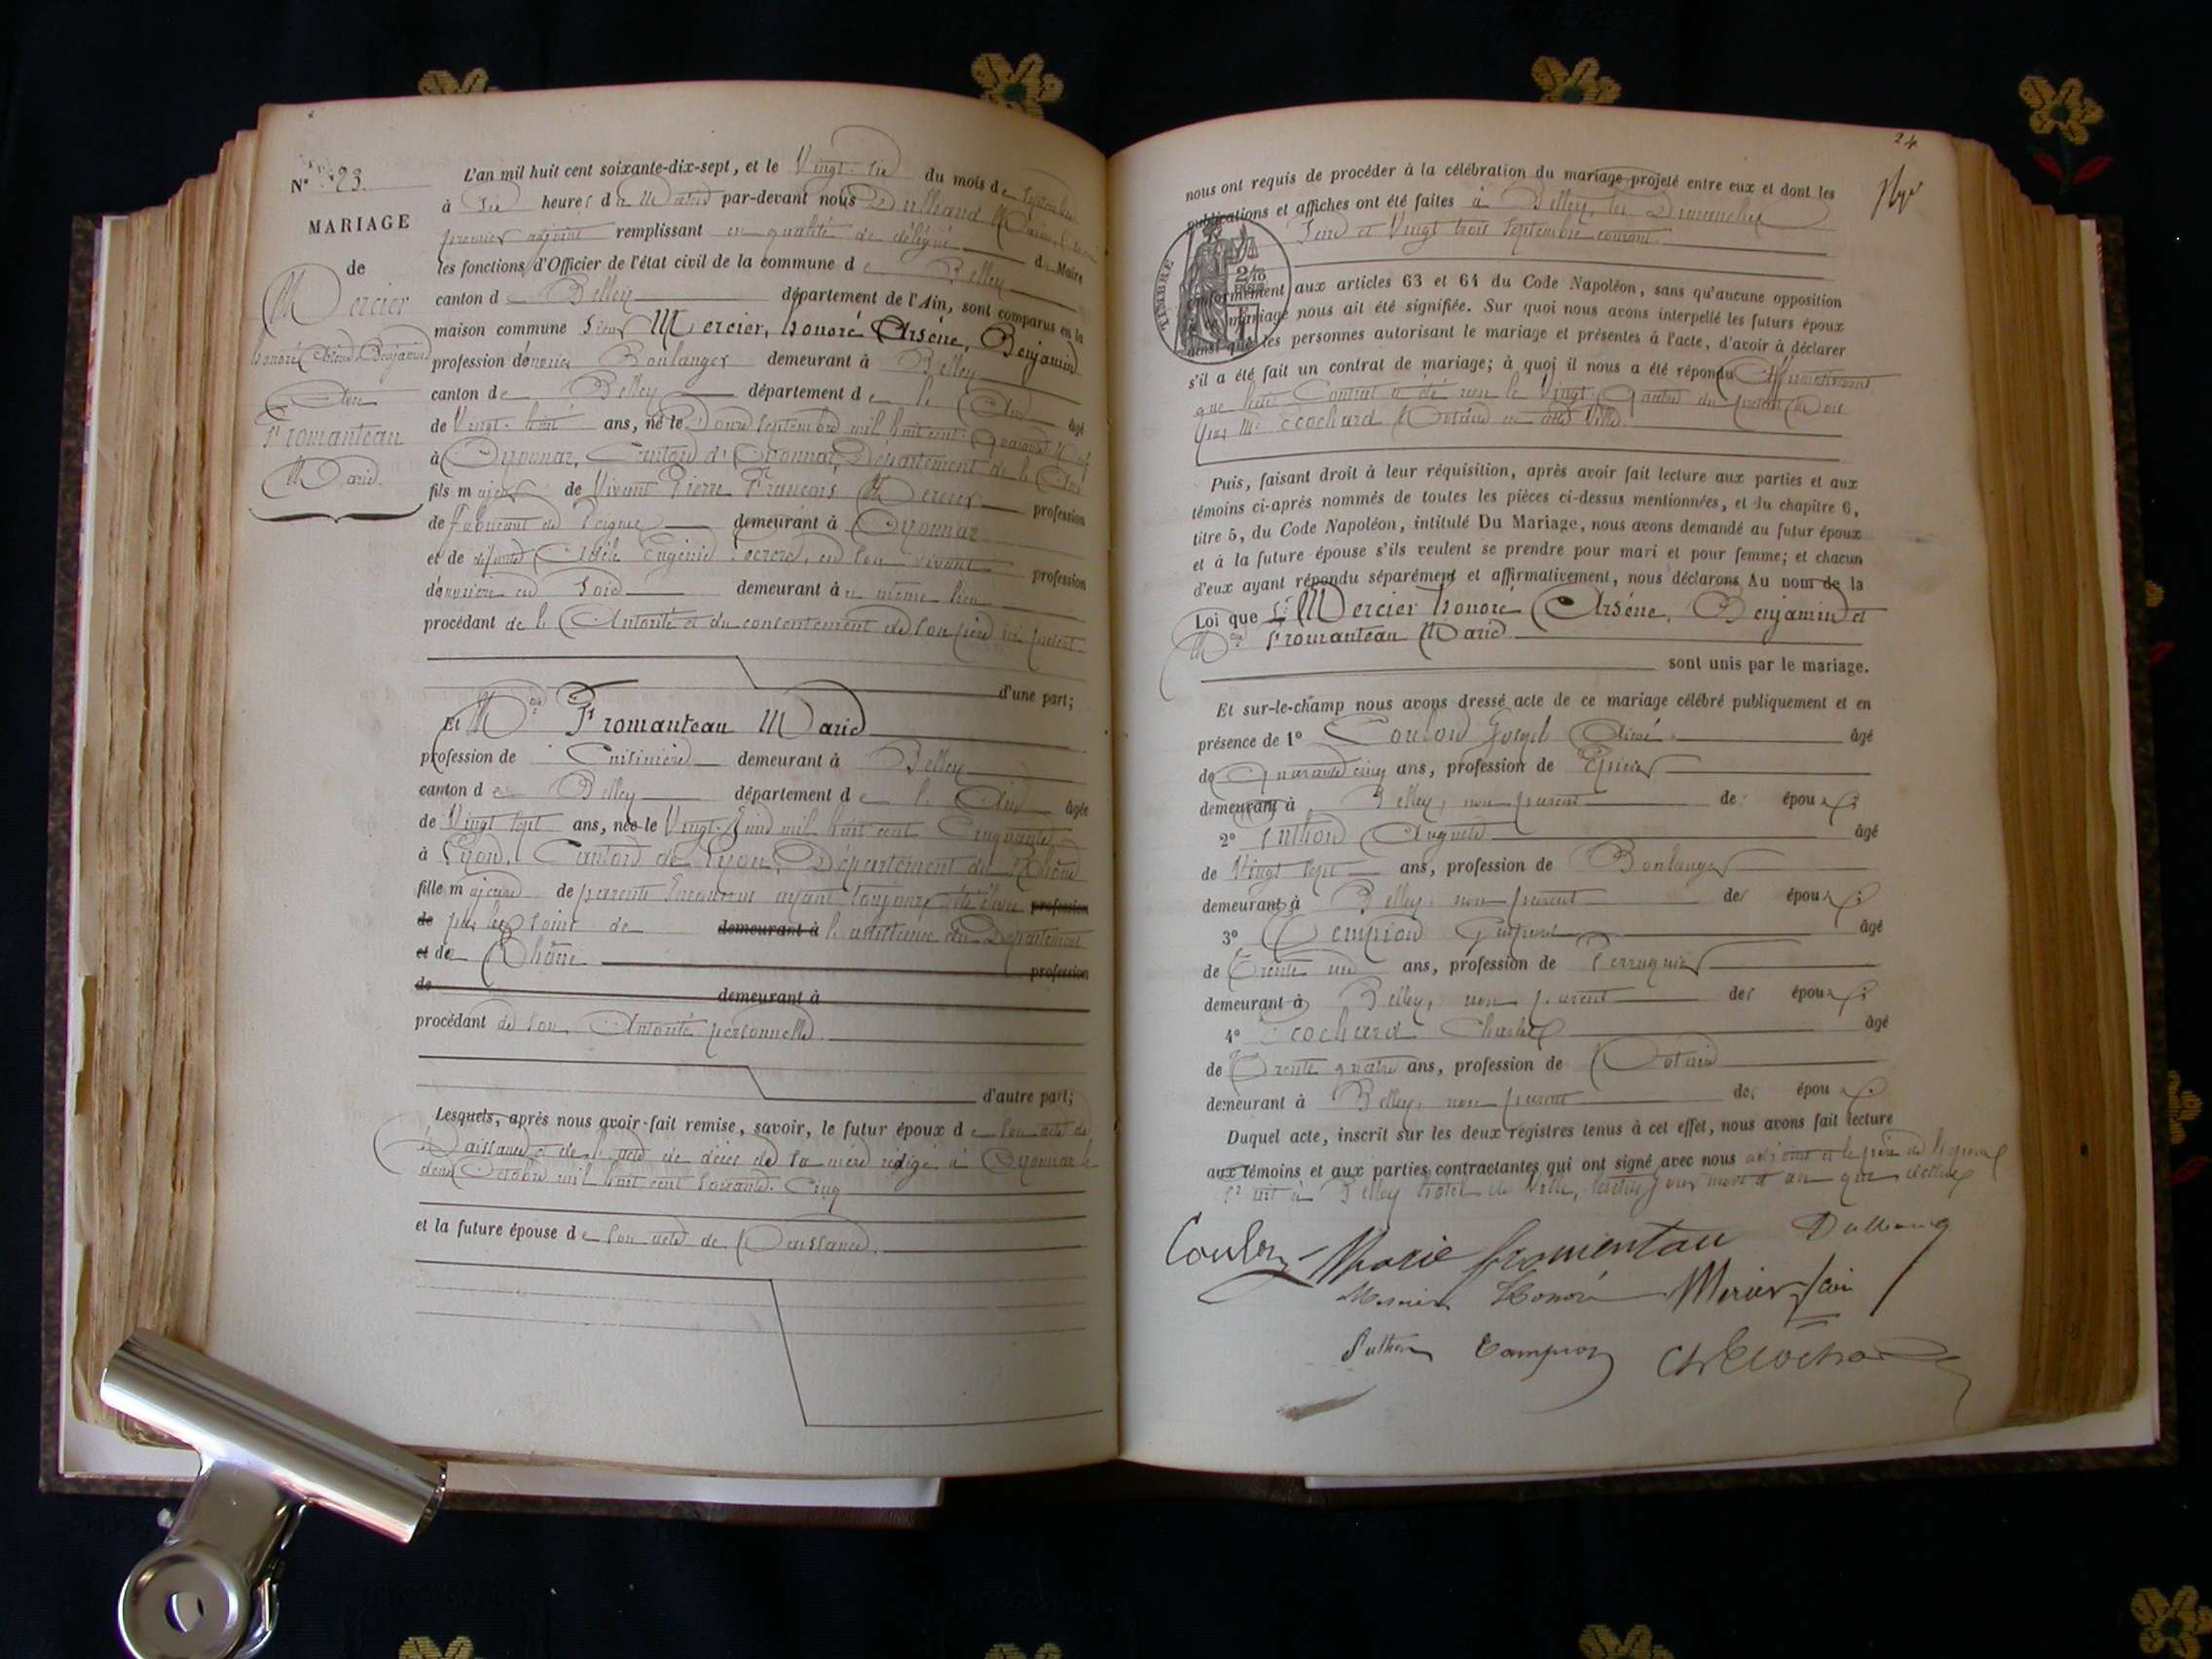 N° 23.
MARIAGE
de
Mercier
honoré Arsène Benjamin
Avec
Fromanteau
Marie.
L'an mil huit cent soixante-dix-sept, et le Vingt-six du mois de Septembre
à six heures du Matin par-devant nous Dulliand
premier adjoint remplissant en qualité de délégué du Maire
les fonctions d'Officier de l'état civil de la commune de Belley
canton de Belley département de l'Ain, sont comparus en la
maison commune Sieur Mercier, honoré Arsène, Benjamin
profession d'ouvrier Boulanger demeurant à Belley
canton de Belley département de l'Ain âgé
de Vingt-huit ans, né le Douze Septembre mil huit cent Quarante Neuf
à Oyonnax, Canton d'Oyonnax, Département de l'Ain
fils majeur de Vivant Pierre François Mercier profession
de fabricant de Peignes demeurant à Oyonnax
et de défunte Adèle Eugénie en son vivant profession
d'ouvrière en Soie demeurant au même lieu
procédant de l'Autorité et du consentement de son père ici présent
d'une part;
Et Melle Fromanteau Marie
profession de Cuisinière demeurant à Belley
canton de Belley département de l'Ain âgée
de Vingt sept ans, née le Vingt Juin mil huit cent Cinquante
à Lyon, Canton de Lyon, Département du Rhône
fille majeure de parents inconnus ayant toujours été élevée profession
de par les soins de demeurant à l'assistance du Département
et de Rhône profession
de demeurant à
procédant de son Autorité personnelle
d'autre part;
Lesquels, après nous avoir fait remise, savoir, le futur époux de son acte de
Naissance et de l'acte de décès de sa mère rédigé à Oyonnax le
deux Octobre mil huit cent soixante-Cinq
et la future épouse de son acte de Naissance.
24
nous ont requis de procéder à la célébration du mariage projeté entre eux et dont les
publications et affiches ont été faites à Belley, les Dimanches
Seize et Vingt trois Septembre courant
TIMBRE
conformément aux articles 63 et 64 du Code Napoléon, sans qu'aucune opposition
à ce mariage nous ait été signifiée. Sur quoi nous avons interpellé les futurs époux
ainsi que les personnes autorisant le mariage et présentes à l'acte, d'avoir à déclarer
s'il a été fait un contrat de mariage; à quoi il nous a été répondu Affirmativement
que leur Contrat a été reçu le Vingt-Quatre du présent Mois
par Me Ecochard Notaire en cette Ville
Puis, faisant droit à leur réquisition, après avoir fait lecture aux parties et aux
témoins ci-après nommés de toutes les pièces ci-dessus mentionnées, et du chapitre 6,
titre 5, du Code Napoléon, intitulé Du Mariage, nous avons demandé au futur époux
et à la future épouse s'ils veulent se prendre pour mari et pour femme; et chacun
d'eux ayant répondu séparément et affirmativement, nous déclarons Au nom de la
Loi que Sr Mercier honoré Arsène, Benjamin et
Melle Fromanteau Marie
sont unis par le mariage.
Et sur-le-champ nous avons dressé acte de ce mariage célébré publiquement et en
présence de 1° Coulon Joseph Aimé âgé
de Quarante cinq ans, profession de Epicier
demeurant à Belley, non parent des époux
2° Suthon Auguste âgé
de Vingt sept ans, profession de Boulanger
demeurant à Belley, non parent des époux
3° Tempion Gaspard âgé
de Trente un ans, profession de Perruquier
demeurant à Belley, non parent des époux
4° Ecochard Charles âgé
de Trente quatre ans, profession de Notaire
demeurant à Belley, non parent des époux
Duquel acte, inscrit sur les deux registres tenus à cet effet, nous avons fait lecture
aux témoins et aux parties contractantes qui ont signé avec nous adjoint et le père de l'époux
fait à Belley hotel de Ville, les jour mois et an que dessus
Coulon Marie fromentau Dulliand
Mercier Honoré Mercier
Suthon Tampion Ch Ecochard